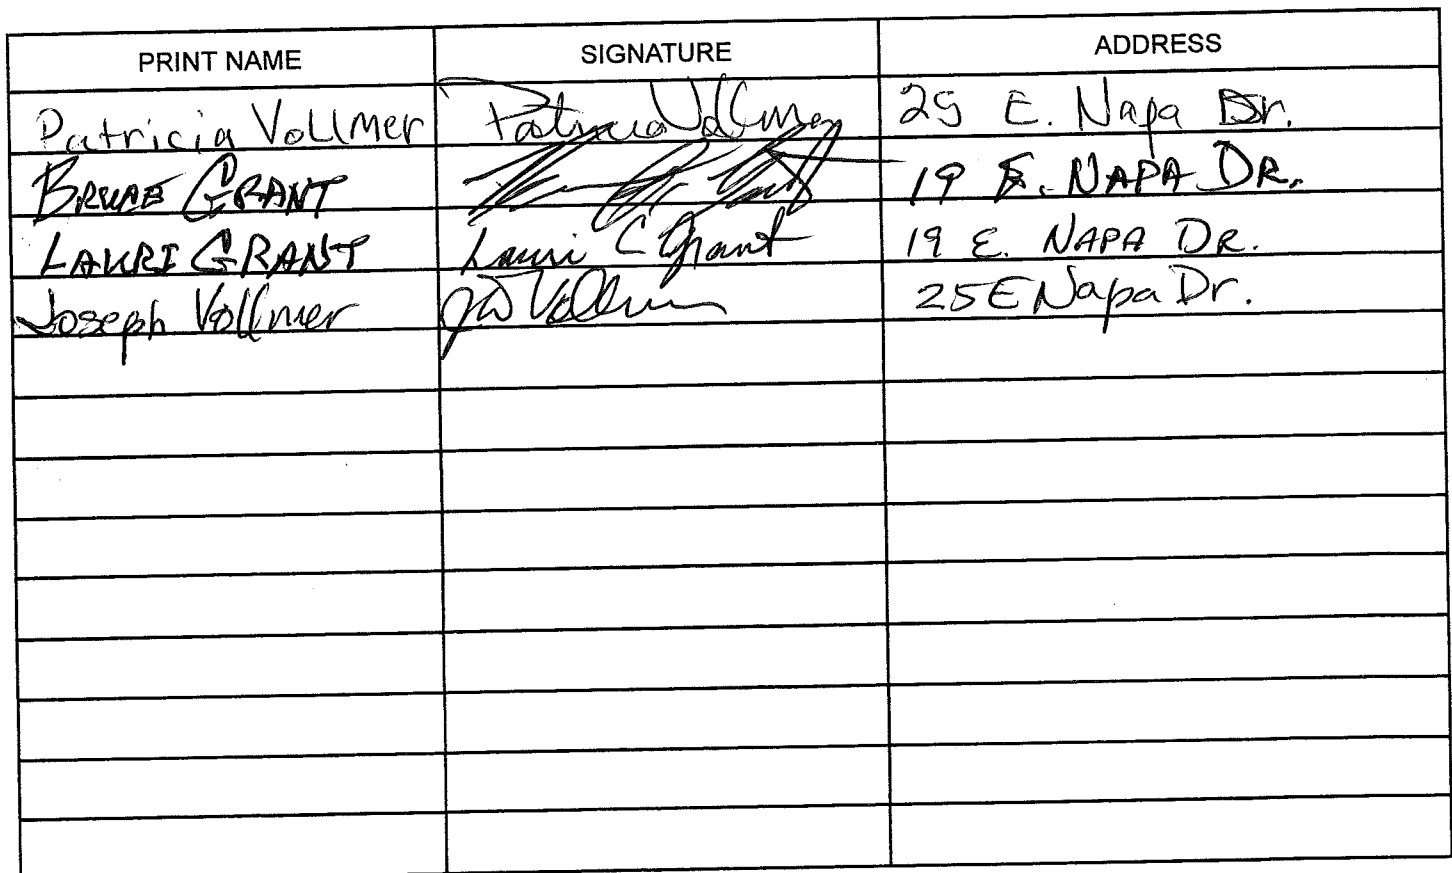 PRINT NAME SIGNATURE ADDRESS
Patricia Vollmer Patricia Vollmer 25 E. Napa Dr.
BRUCE GRANT 19 E. NAPA DR.
LAURI GRANT Lauri C Grant 19 E. NAPA DR.
Joseph Vollmer JW Vollmer 25 E Napa Dr.